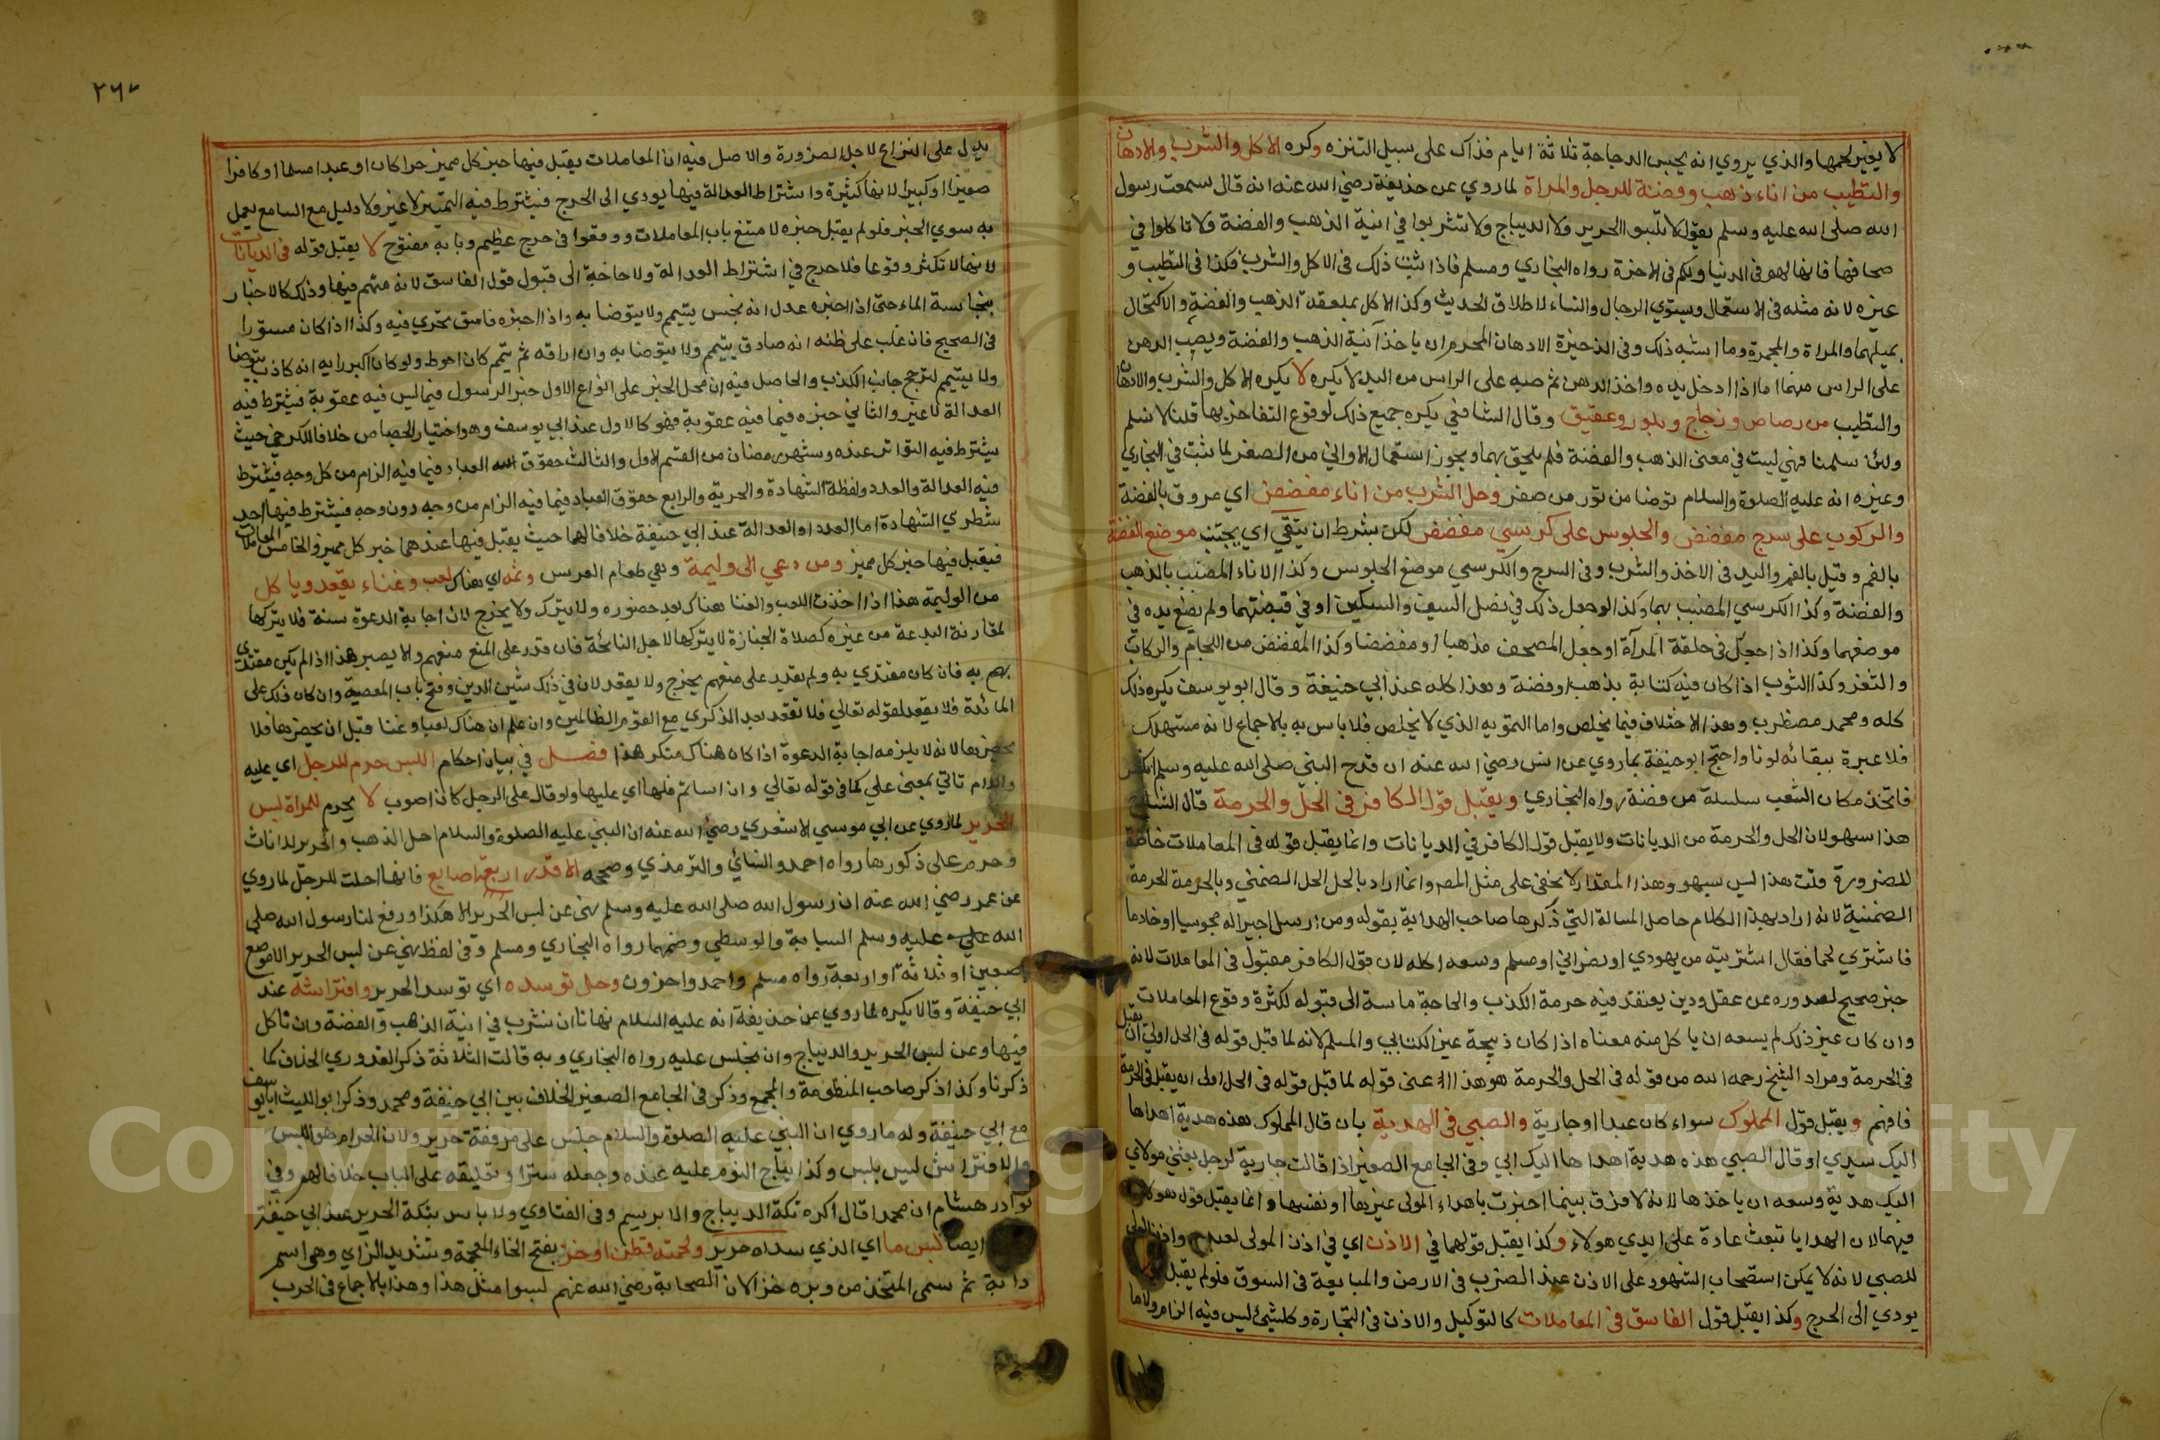 لا يغير لحمها والذي يروي انه يحبس الدجاجة ثلاثة ايام فذاك على سبيل التنزه وكره الاكل والشرب والادهان
والتطيب من اناء ذهب وفضة للرجل والمراة لما روي عن حذيفة رضي الله عنه انه قال سمعت رسول
الله صلى الله عليه وسلم يقول لا تلبسوا الحرير ولا الديباج ولا تشربوا في انية الذهب والفضة ولا تاكلوا في
صحافها فانها لهم في الدنيا ولكم في الاخرة رواه البخاري ومسلم فاذا ثبت ذلك في الاكل والشرب فكذا في التطيب و
غيره لانه مثله في الاستعمال ويستوي الرجال والنساء لاطلاق الحديث وكذا الاكل بملعقة الذهب والفضة والاكتحال
بميلهما والمراة والمجمرة وما اشبه ذلك وفي الذخيرة الادهان المحرم ان ياخذ آنية الذهب والفضة ويصب الدهن
على الراس منها اما اذا ادخل يده واخذ الدهن ثم صبه على الراس من اليد لا يكره لا يكره الاكل والشرب والادهان
والتطيب من رصاص وزجاج وبلور وعقيق وقال الشافعي يكره جميع ذلك لوقوع التفاخر بها قلنا لا نسلم
ولئن سلمنا فهي ليست في معنى الذهب والفضة فلم يلحق بهما ويجوز استعمال الاواني من الصفر لما ثبت في البخاري
وغيره انه عليه الصلوة والسلام توضا من تور من صفر وحل الشرب من اناء مفضض اي مزوق بالفضة
والركوب على سرج مفضض والجلوس على كرسي مفضض لكن بشرط ان يتقي اي يجتنب موضع الفضة
بالفم وقيل بالفم واليد في الاخذ والشرب وفي السرج والكرسي موضع الجلوس وكذا الاناء المضبب بالذهب
والفضة وكذا الكرسي المضبب بهما وكذا لو جعل ذلك في نصل السيف والسكين او في قبضتهما ولم يضع يده في
موضعهما وكذا اذا جعل في حلقة المرآة او جعل المصحف مذهبا او مفضضا وكذا المفضض من اللجام والركاب
والثفر وكذا الثوب اذا كان فيه كتابة بذهب او فضة وهذا كله عند ابي حنيفة وقال ابو يوسف يكره ذلك
كله ومحمد مضطرب وهذا الاختلاف فيما يخلص واما التمويه الذي لا يخلص فلا باس به بالاجماع لانه مستهلك
فلا عبرة ببقائه لونا واحتج ابو حنيفة بما روي عن انس رضي الله عنه ان قدح النبي صلى الله عليه وسلم انكسر
فاتخذ مكان الشعب سلسلة من فضة رواه البخاري ويقبل قول الكافر في الحل والحرمة قال الشارح
هذا سهو لان الحل والحرمة من الديانات ولا يقبل قول الكافر في الديانات وانما يقبل قوله في المعاملات خاصة
للضرورة قلت هذا ليس سهو وهذا المقدار لا يخفى على مثل المص وانما اراد بالحل الحل الضمني وبالحرمة الحرمة
الضمنية لانه اراد بهذا الكلام حاصل المسالة التي ذكرها صاحب الهداية بقوله ومن ارسل اجيرا له مجوسيا او خادما
فاشترى لحما فقال اشتريته من يهودي او نصراني او مسلم وسعه اكله لان قول الكافر مقبول في المعاملات لانه
خبر صحيح لصدوره عن عقل ودين يعتقد فيه حرمة الكذب والحاجة ماسة الى قبوله لكثرة وقوع المعاملات
وان كان غير ذلك لم يسعه ان ياكل منه معناه اذا كان ذبيحة غير الكتابي والمسلم لانه لما قبل قوله في الحل اولى ان يقبل
في الحرمة ومراد الشيخ رحمه الله من قوله في الحل والحرمة هو هذا اعني قوله لما قبل قوله في الحل اولى انه يقبل في الحرمة
فافهم ويقبل قول المملوك سواء كان عبدا او جارية والصبي في الهدية بان قال المملوك هذه هدية اهداها
اليك سيدي او قال الصبي هذه هدية اهداها اليك ابي وفي الجامع الصغير اذا قالت جارية لرجل بعثني مولاي
اليك هدية وسعه ان ياخذها لانه لا فرق بينما اخبرت باهداء المولى غيرها او نفسها وانما يقبل قول هولاء
فيهما لان الهدايا تبعث عادة على ايدي هولاء وكذا يقبل قولهما في الاذن اي في اذن المولى لعبده واذن الولي
للصبي لانه لا يمكن استصحاب الشهود على الاذن عند الضرب في الارض والمبايعة في السوق فلو لم يقبل
يودي الى الحرج وكذا يقبل قول الفاسق في المعاملات كالتوكيل والاذن في التجارة وكل شئ ليس فيه الزام ولا ما
٢٦٧
يدل على النزاع لاجل الضرورة والاصل فيه ان المعاملات يقبل فيها خبر كل مميز حرا كان او عبدا مسلما او كافرا
صغيرا او كبيرا لانها كثيرة واشتراط العدالة فيها يودي الى الحرج فيشترط فيه التمييز لا غير ولا دليل مع السامع يعمل
به سوي الخبر فلو لم يقبل خبره لامتنع باب المعاملات ووقعوا في حرج عظيم وبابه مفتوح لا يقبل قوله في الديانات
لانها لا تكثر وقوعا فلا حرج في اشتراط العدالة ولا حاجة الى قبول قول الفاسق لانه متهم فيها وذلك كالاخبار
بنجاسة الماء حتى اذا اخبره عدل انه نجس يتيمم ولا يتوضا به واذا اخبره فاسق تحرى فيه وكذا اذا كان مستورا
في الصحيح فان غلب على ظنه انه صادق يتيمم ولا يتوضا به وان اراقه ثم تيمم كان احوط ولو كان اكبر رايه انه كاذب يتوضا
ولا يتيمم لترجح جانب الكذب والحاصل فيه ان محل الخبر على انواع الاول خبر الرسول فيما ليس فيه عقوبة فيشترط فيه
العدالة لا غير والثاني خبره فيما فيه عقوبة فهو كالاول عند ابي يوسف وهو اختيار الجصاص خلافا للكرخي حيث
يشترط فيه التواتر عنده وشهر رمضان من القسم الاول والثالث حقوق العباد فيما فيه الزام من كل وجه فيشترط
فيه العدالة والعدد ولفظة الشهادة والحرية والرابع حقوق العباد فيما فيه الزام من وجه دون وجه فيشترط فيها احد
شطري الشهادة اما العدد او العدالة عند ابي حنيفة خلافا لهما حيث يقبل فيها عندهما خبر كل مميز والخامس المعاملات
فيقبل فيها خبر كل مميز ومن دعي الى وليمة وهي طعام العرس وثمه اي هناك لعب وغناء يقعد وياكل
من الوليمة هذا اذا اخذت اللعب والغنا هناك بعد حضوره ولا يترك ولا يخرج لان اجابة الدعوة سنة فلا يتركها
لمقارنة البدعة من غيره كصلاة الجنازة لا يتركها لاجل النائحة فان قدر على المنع منعهم والا يصبر هذا اذا لم يكن مقتدى
بهم به فان كان مقتدي به ولم يقدر على منعهم يخرج ولا يقعد لان في ذلك شين الدين وفتح باب المعصية وان كان ذلك على
المائدة فلا يقعد لقوله تعالى فلا تقعد بعد الذكرى مع القوم الظالمين وان علم ان هناك لعبا وغنا قبل ان يحضرها فلا
يحضرها لانه لا يلزمه اجابة الدعوة اذا كان هناك منكر هذا فصل في بيان احكام اللبس حرم للرجل اي عليه
واللام تاتي بمعنى على كما في قوله تعالى وان اساتم فلها اي عليها ولو قال على الرجل كان اصوب لا يحرم للمراة لبس
الحرير لما روي عن ابي موسي الاشعري رضي الله عنه ان النبي عليه الصلوة والسلام احل الذهب والحرير للاناث
وحرم على ذكورها رواه احمد والنسائي والترمذي وصححه الا قدر اربعة اصابع فانها احلت للرجل لما روي
عن عمر رضي الله عنه ان رسول الله صلى الله عليه وسلم نهى عن لبس الحرير الا هكذا ورفع لنا رسول الله صلى
الله عليه وسلم السبابة والوسطي وضمهما رواه البخاري ومسلم وفي لفظ نهى عن لبس الحرير الا موضع
اصبعين او ثلاثة او اربعة رواه مسلم واحمد واخرون وحل توسده اي توسد الحرير وافتراشه عند
ابي حنيفة وقالا يكره لما روي عن حذيفة انه عليه السلام نهانا ان نشرب في انية الذهب والفضة وان ناكل
فيها وعن لبس الحرير والديباج وان نجلس عليه رواه البخاري وبه قالت الثلاثة ذكر القدوري الخلاف كما
ذكرنا وكذا ذكر صاحب المنظومة والمجمع وذكر في الجامع الصغير الخلاف بين ابي حنيفة ومحمد وذكر ابو الليث ابا يوسف
مع ابي حنيفة وله ما روي ان النبي عليه الصلوة والسلام جلس على مرفقة حرير ولان الحرام هو اللبس
والافتراش ليس بلبس وكذا يباح النوم عليه عنده وجعله سترا وتعليقه على الباب خلافا لهم وفي
نوادر هشام ان محمدا قال اكره تكة الديباج والابريسم وفي الفتاوي ولا باس بتكة الحرير عند ابي حنيفة
ايضا لبس ما اي الذي سداه حرير ولحمته قطن او خز بفتح الخاء المعجمة وتشديد الزاي وهو اسم
دابة ثم سمى المتخذ من وبره خزا لان الصحابة رضي الله عنهم لبسوا مثل هذا وهذا بالاجماع في الحرب
Copyright © King Saud University